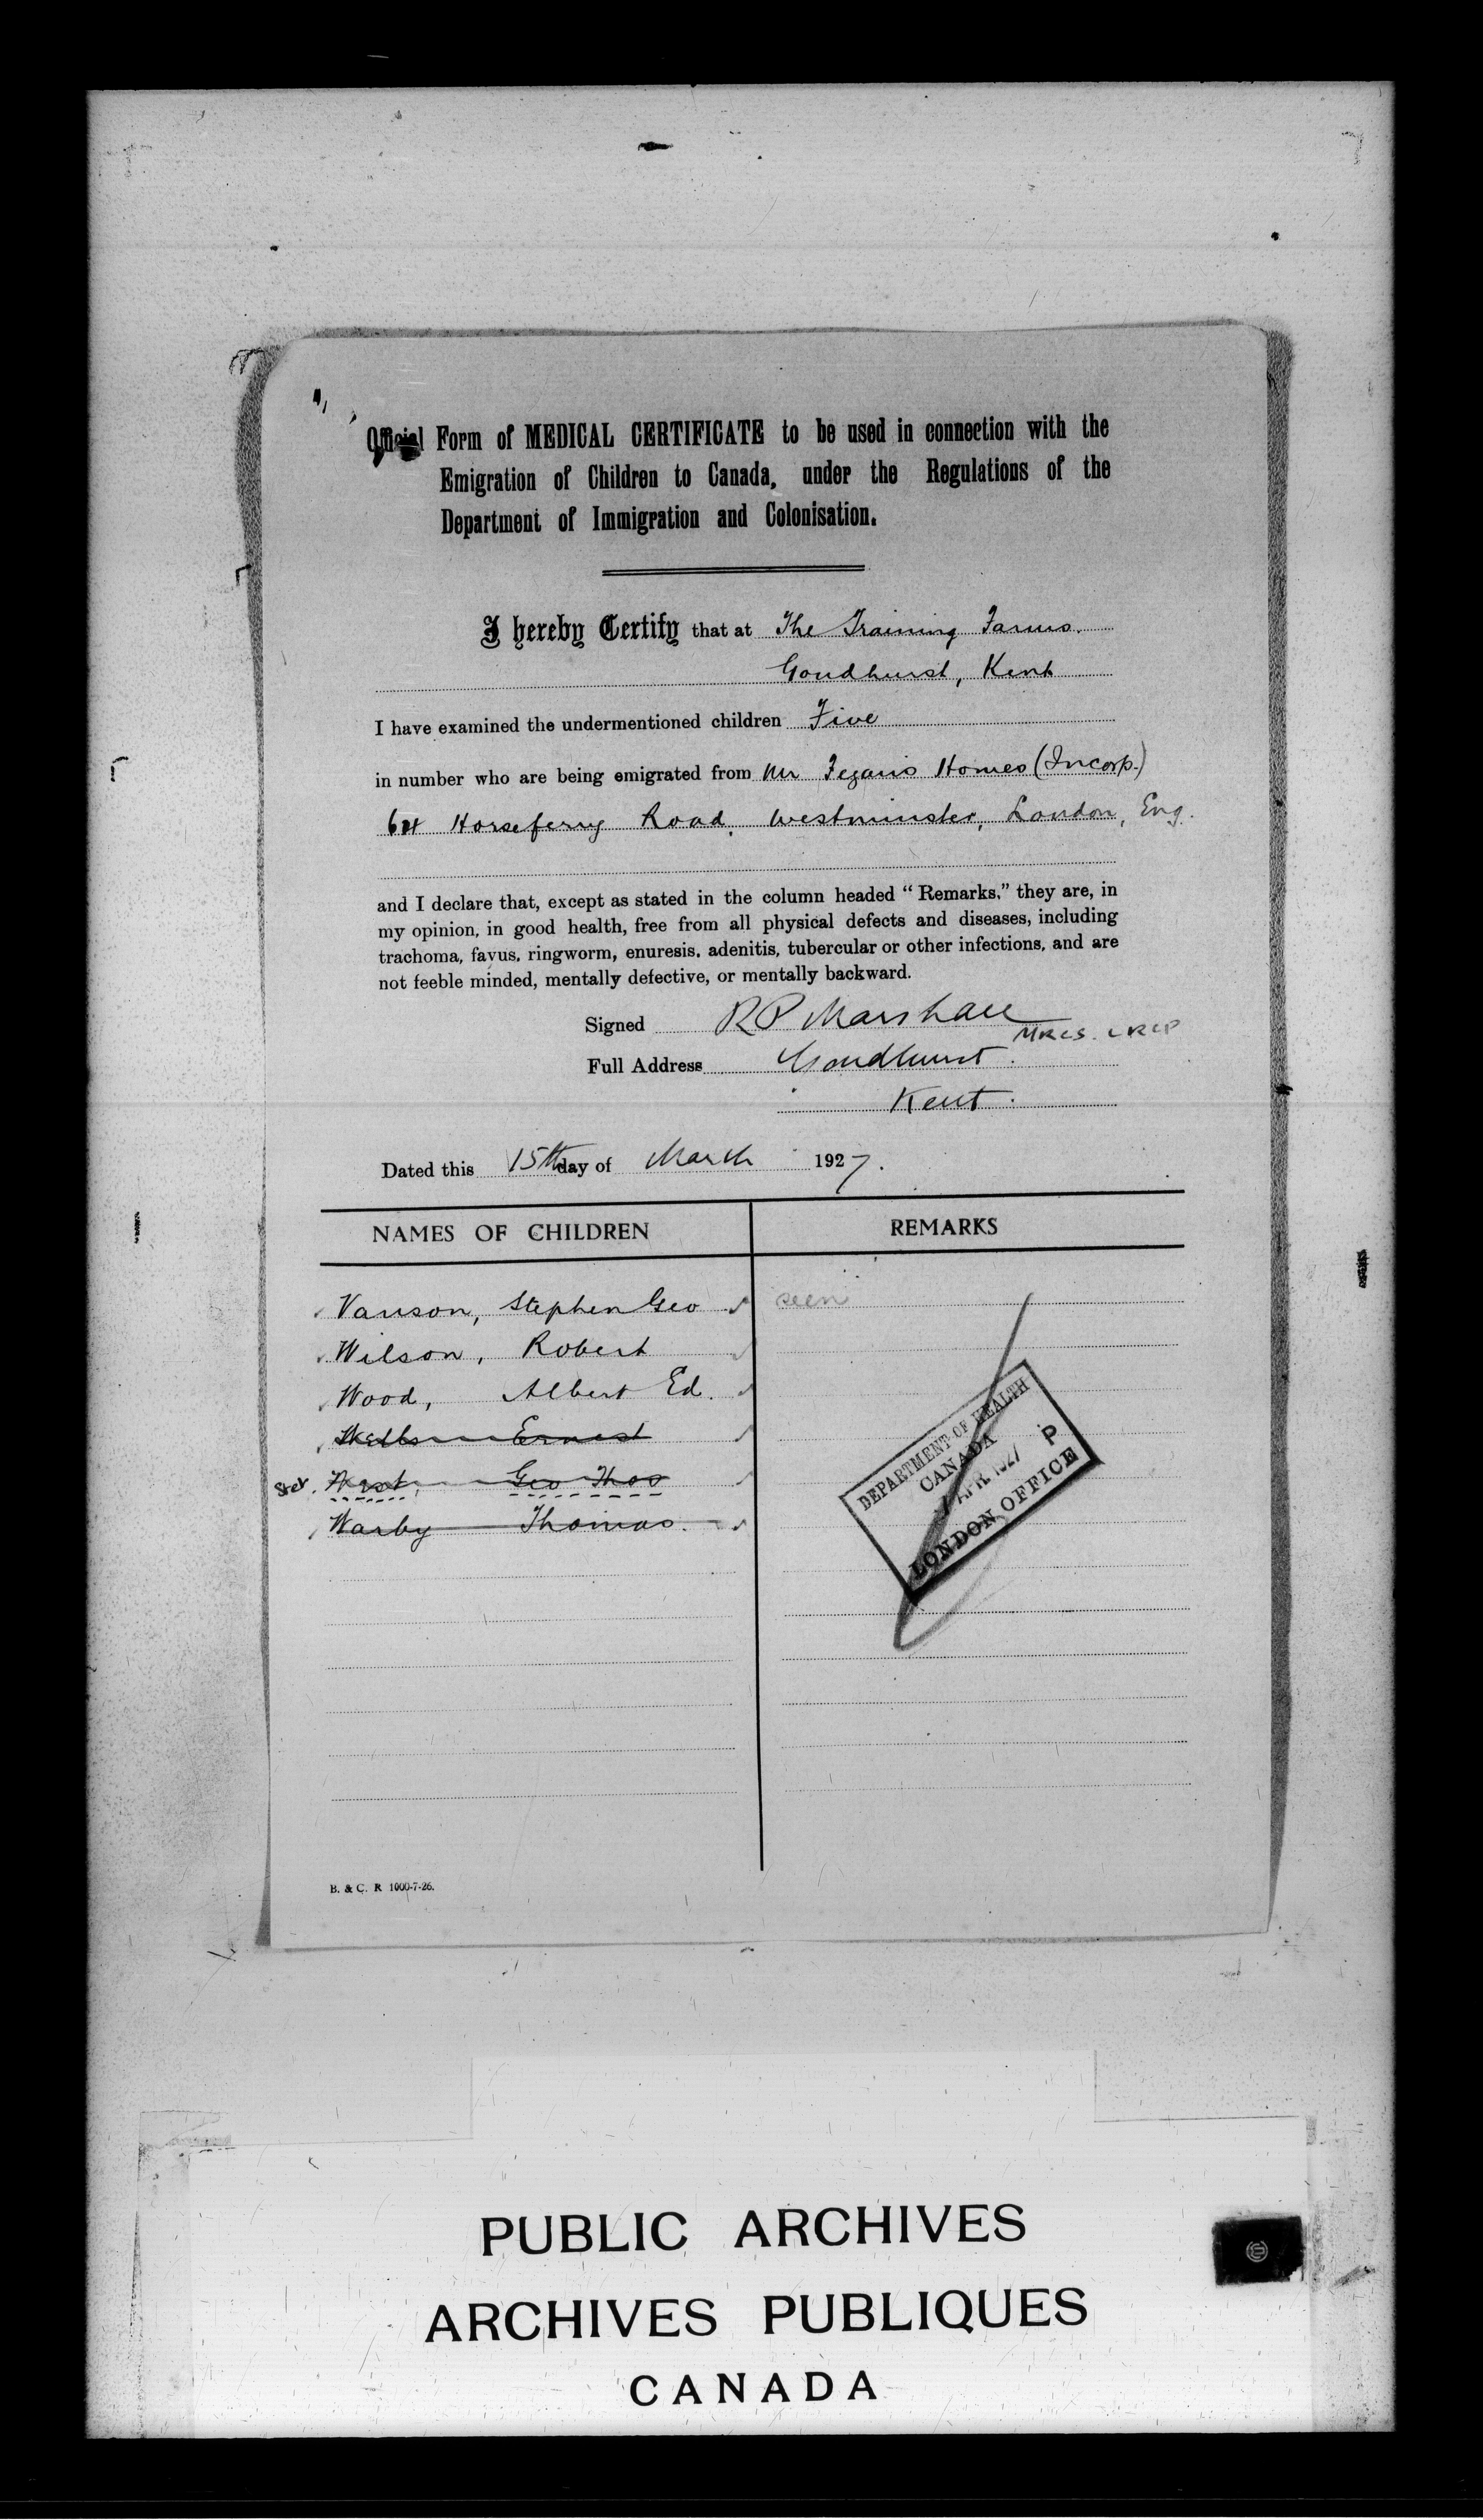 Official Form of MEDICAL CERTIFICATE to be used in connection with the
Emigration of Children to Canada, under the Regulations of the
Department of Immigration and Colonisation.
I hereby Certify that at The Training Farms.
Goudhurst, Kent
I have examined the undermentioned children Five
in number who are being emigrated from Mr Fegan's Homes (Incorp.)
Horseferry Road, Westminster, London, Eng.
and I declare that, except as stated in the column headed “Remarks,” they are, in
my opinion, in good health, free from all physical defects and diseases, including
trachoma, favus, ringworm, enuresis, adenitis, tubercular or other infections, and are
not feeble minded, mentally defective, or mentally backward.
Signed R P Marshall
MRCS. LRCP
Full Address Goudhurst.
Kent.
Dated this 15th day of March 1927.
NAMES OF CHILDREN REMARKS
Vanson, Stephen Geo seen
Wilson, Robert
Wood, Albert Ed.
Ernest
Stet. Geo Thos
Warby Thomas.
DEPARTMENT OF HEALTH
CANADA
APR 1927 P
LONDON OFFICE
B. & C. R 1000-7-26.
PUBLIC ARCHIVES
ARCHIVES PUBLIQUES
CANADA